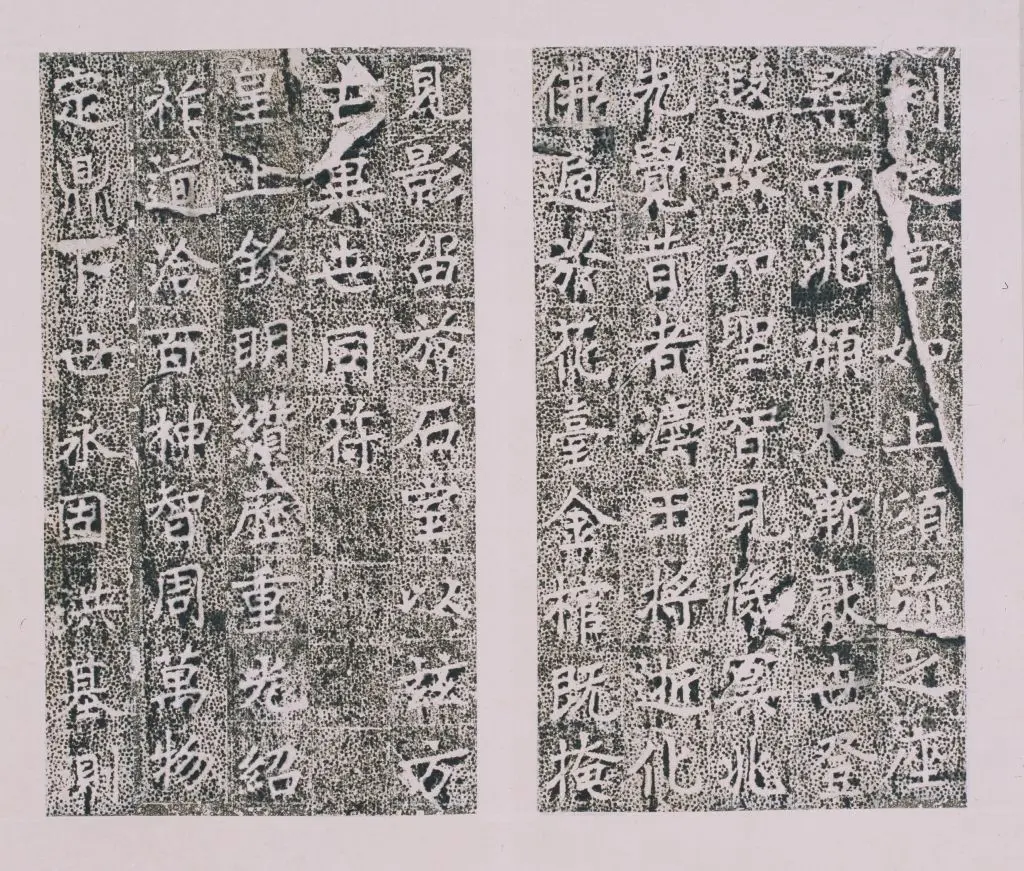 利之宫如上須弥之座
尋而洮頮大漸厭世登
遐故知聖智見機冥兆
先覺昔者灋王將逝化
佛遍於花臺金棺既掩
見影留於石室以兹方
古異世同符
皇上欽明纘歷重光紹
祚道洽百神智周萬物
定鼎卜世永固洪基則